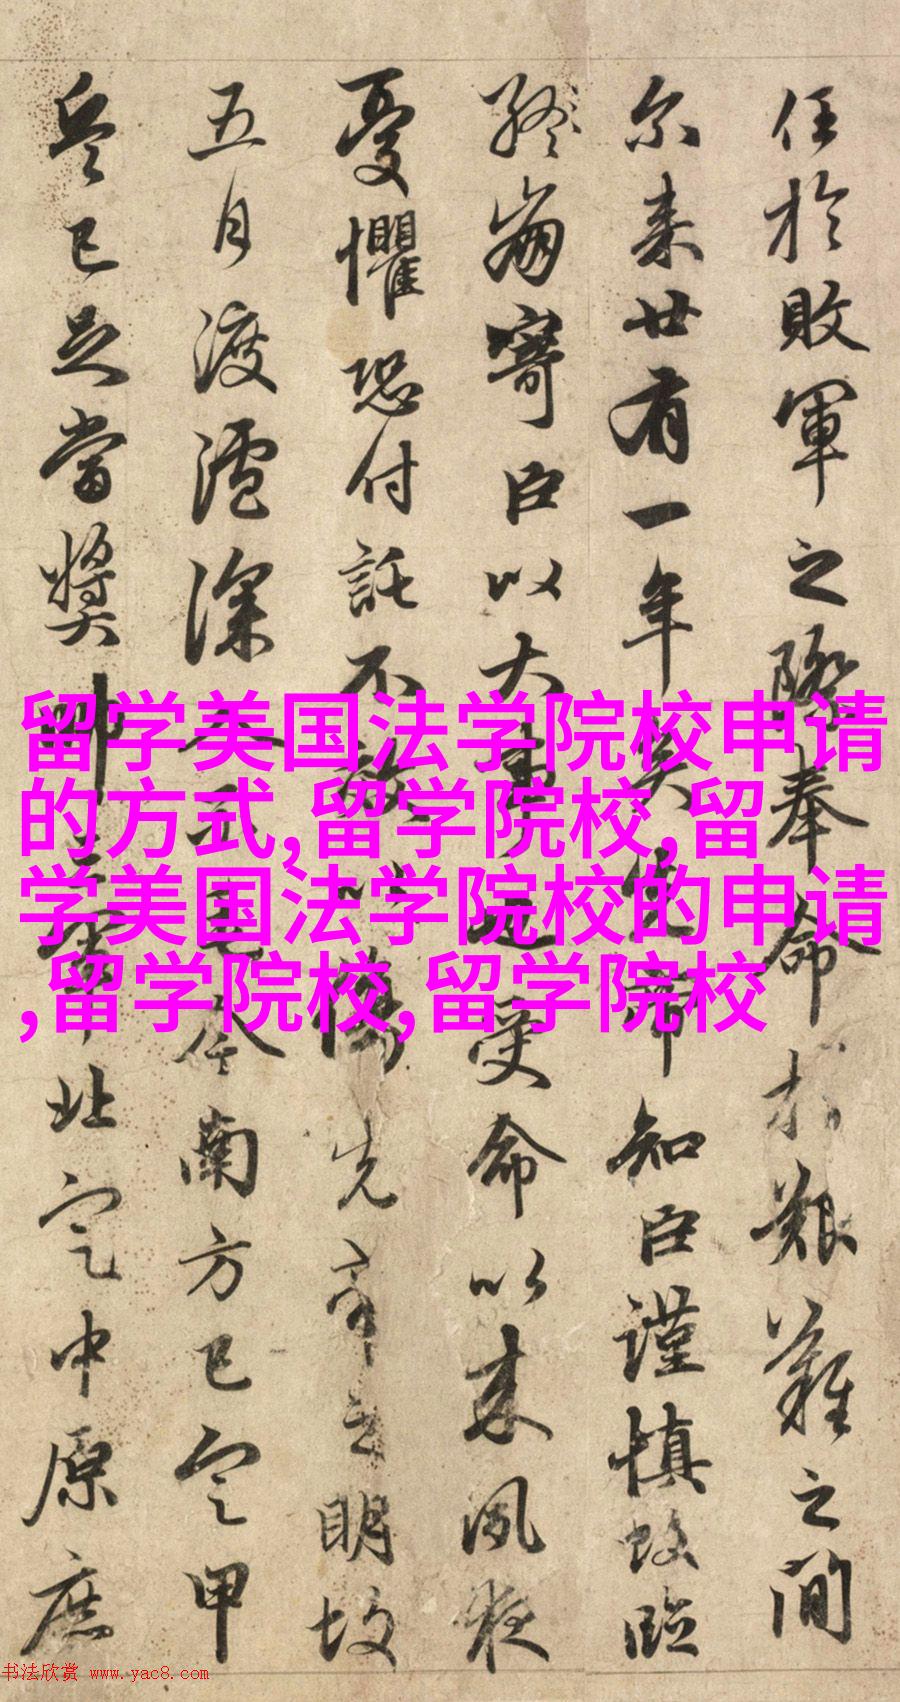 任於敗軍之際奉命於艱難之間
尔来廿有一年矣先帝知臣謹慎故臨
終崩寄臣以大事也受命以来夙夜
憂懼恐付託不效以傷先帝之明故
五月渡瀘深入不毛今南方已定甲
兵已足當獎帥三軍北定中原庶
留学美国法学院校申请
的方式,留学院校,留
学美国法学院校的申请
,留学院校,留学院校
书法欣赏 www.yac8.com